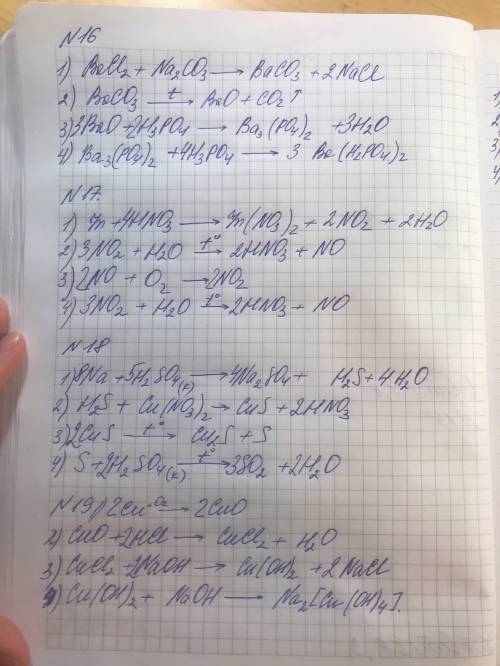 N16
1) BaCl2 + Na2CO3 → BaCO3 + 2NaCl
2) BaCO3 t→ BaO + CO2↑
3) 3BaO + 2H3PO4 → Ba3(PO4)2 + 3H2O
4) Ba3(PO4)2 + 4H3PO4 → 3 Ba(H2PO4)2
N17.
1) Zn + 4HNO3 → Zn(NO3)2 + 2NO2 + 2H2O
2) 3NO2 + H2O t°→ 2HNO3 + NO
3) 2NO + O2 → 2NO2
4) 3NO2 + H2O t°→ 2HNO3 + NO
N18
1) 8Na + 5H2SO4(к) → 4Na2SO4 + H2S + 4H2O
2) H2S + Cu(NO3)2 → CuS + 2HNO3
3) 2CuS t°→ Cu2S + S
4) S + 2H2SO4(к) t°→ 3SO2 + 2H2O
N19 1) 2Cu O2→ 2CuO
2) CuO + 2HCl → CuCl2 + H2O
3) CuCl2 + 2NaOH → Cu(OH)2 + 2NaCl
4) Cu(OH)2 + NaOH → Na2[Cu(OH)4].